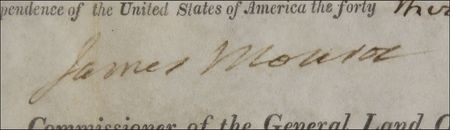 pendence of the United States of America the forty
James Monroe
Commissioner of the General Land